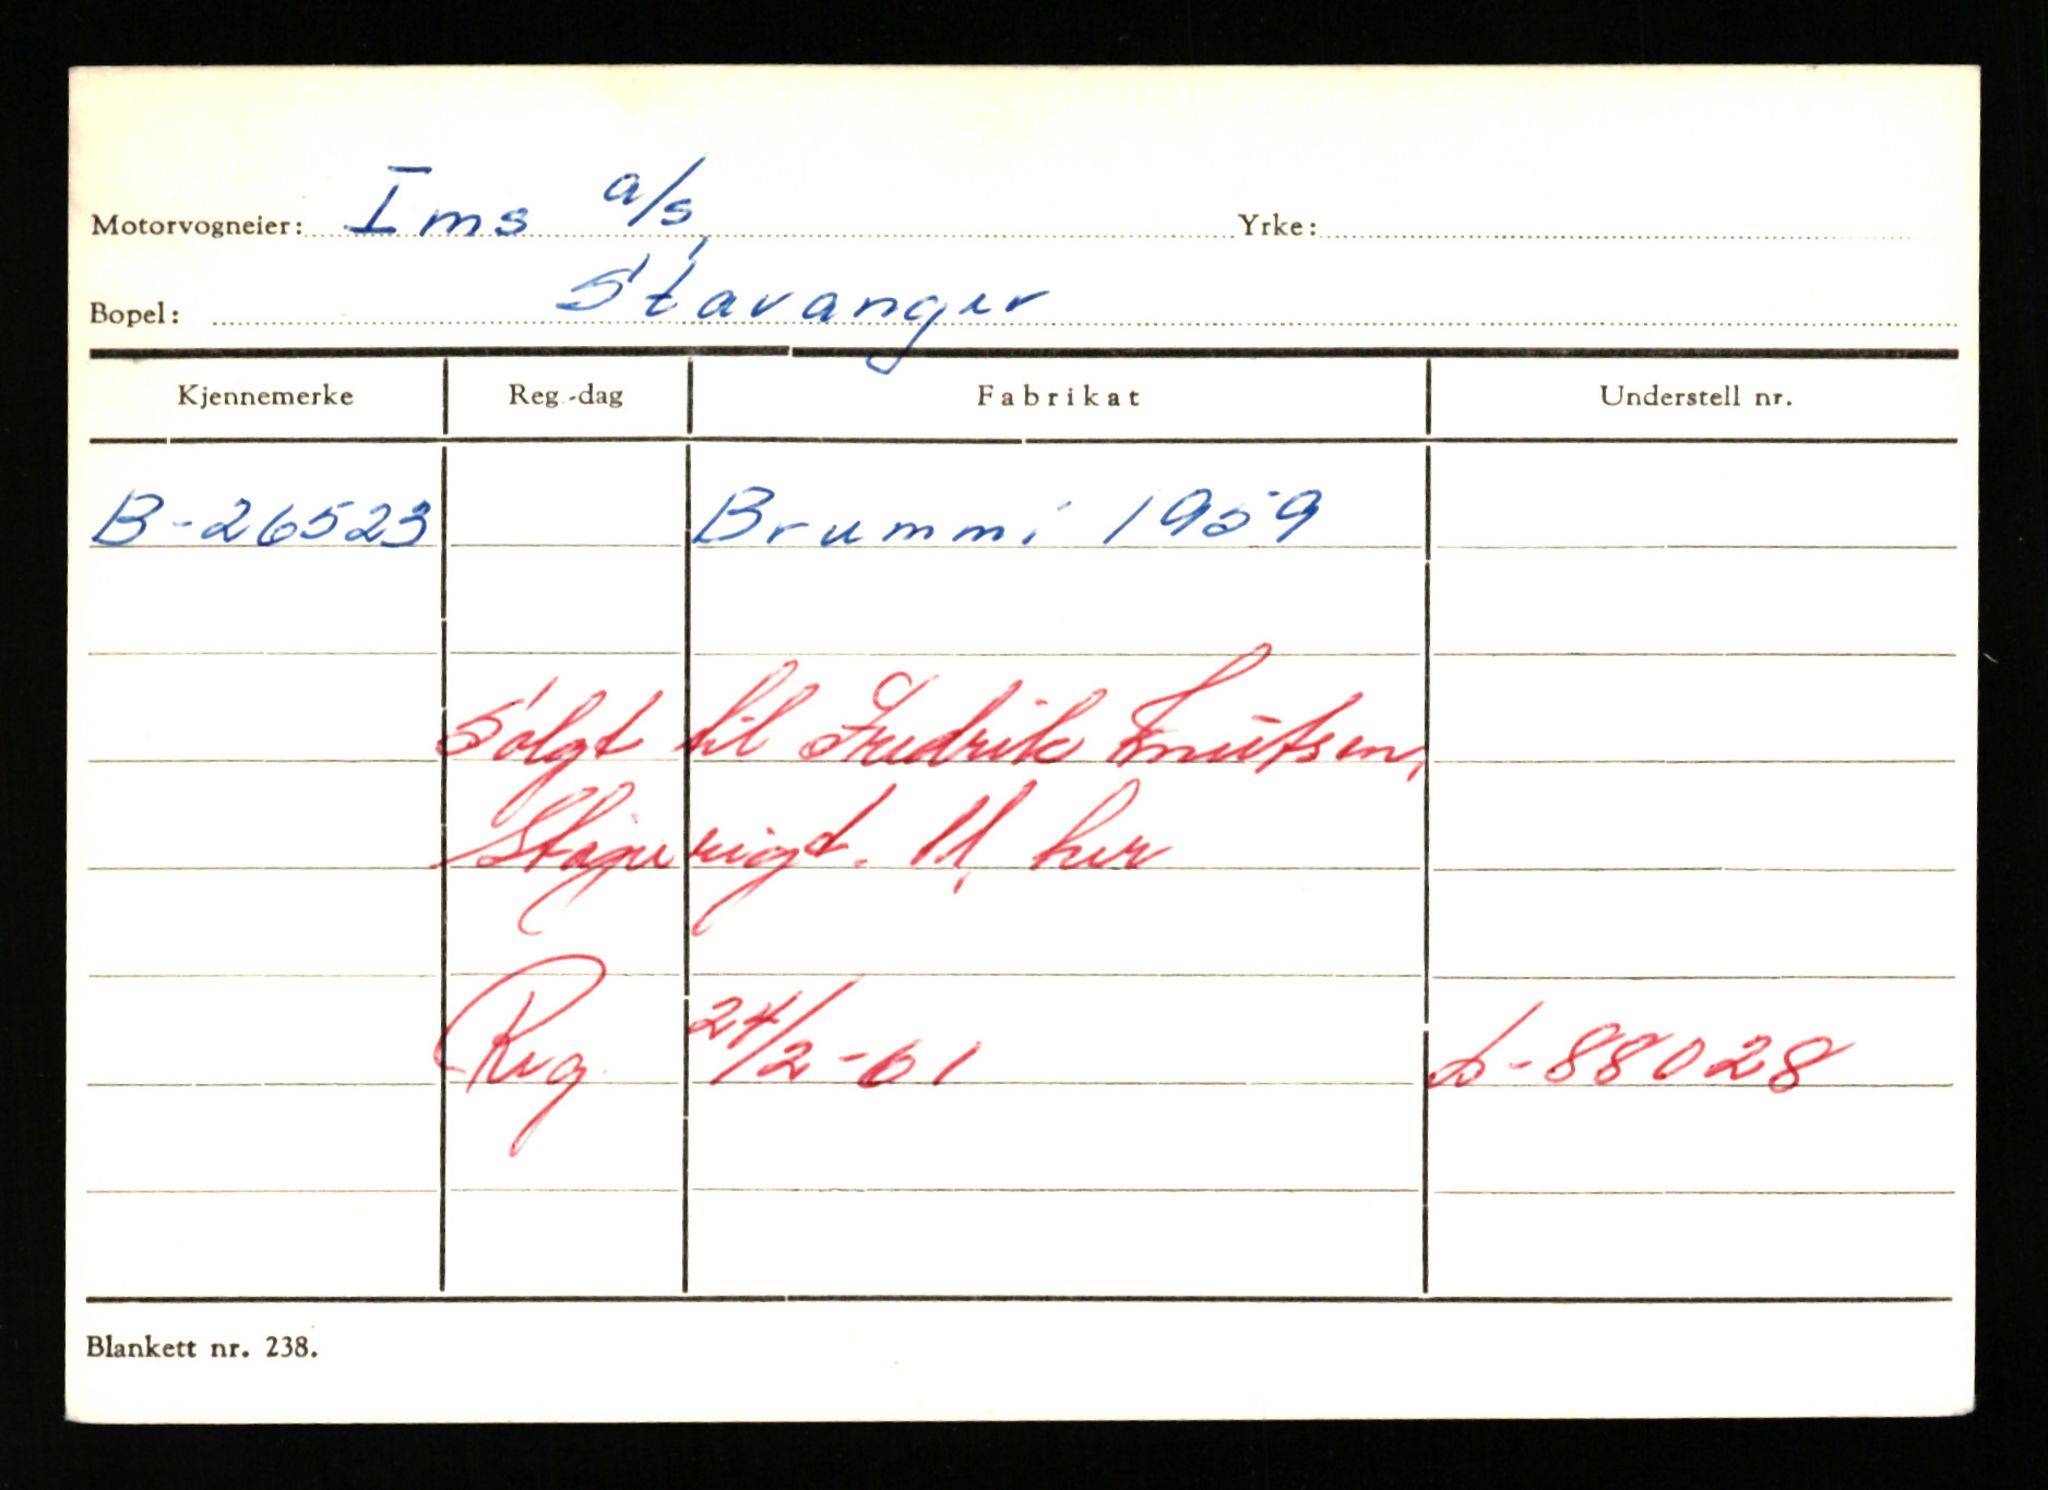 Motorvogneier: Ims a/s, Yrke:
Bopel: Stavanger
Kjennemerke Reg.-dag Fabrikat Understell nr.
B-26523 Brummi 1959
Solgt til Fredrik Knutsen,
11, her
Reg. 24/2-61 L-88028
Blankett nr. 238.